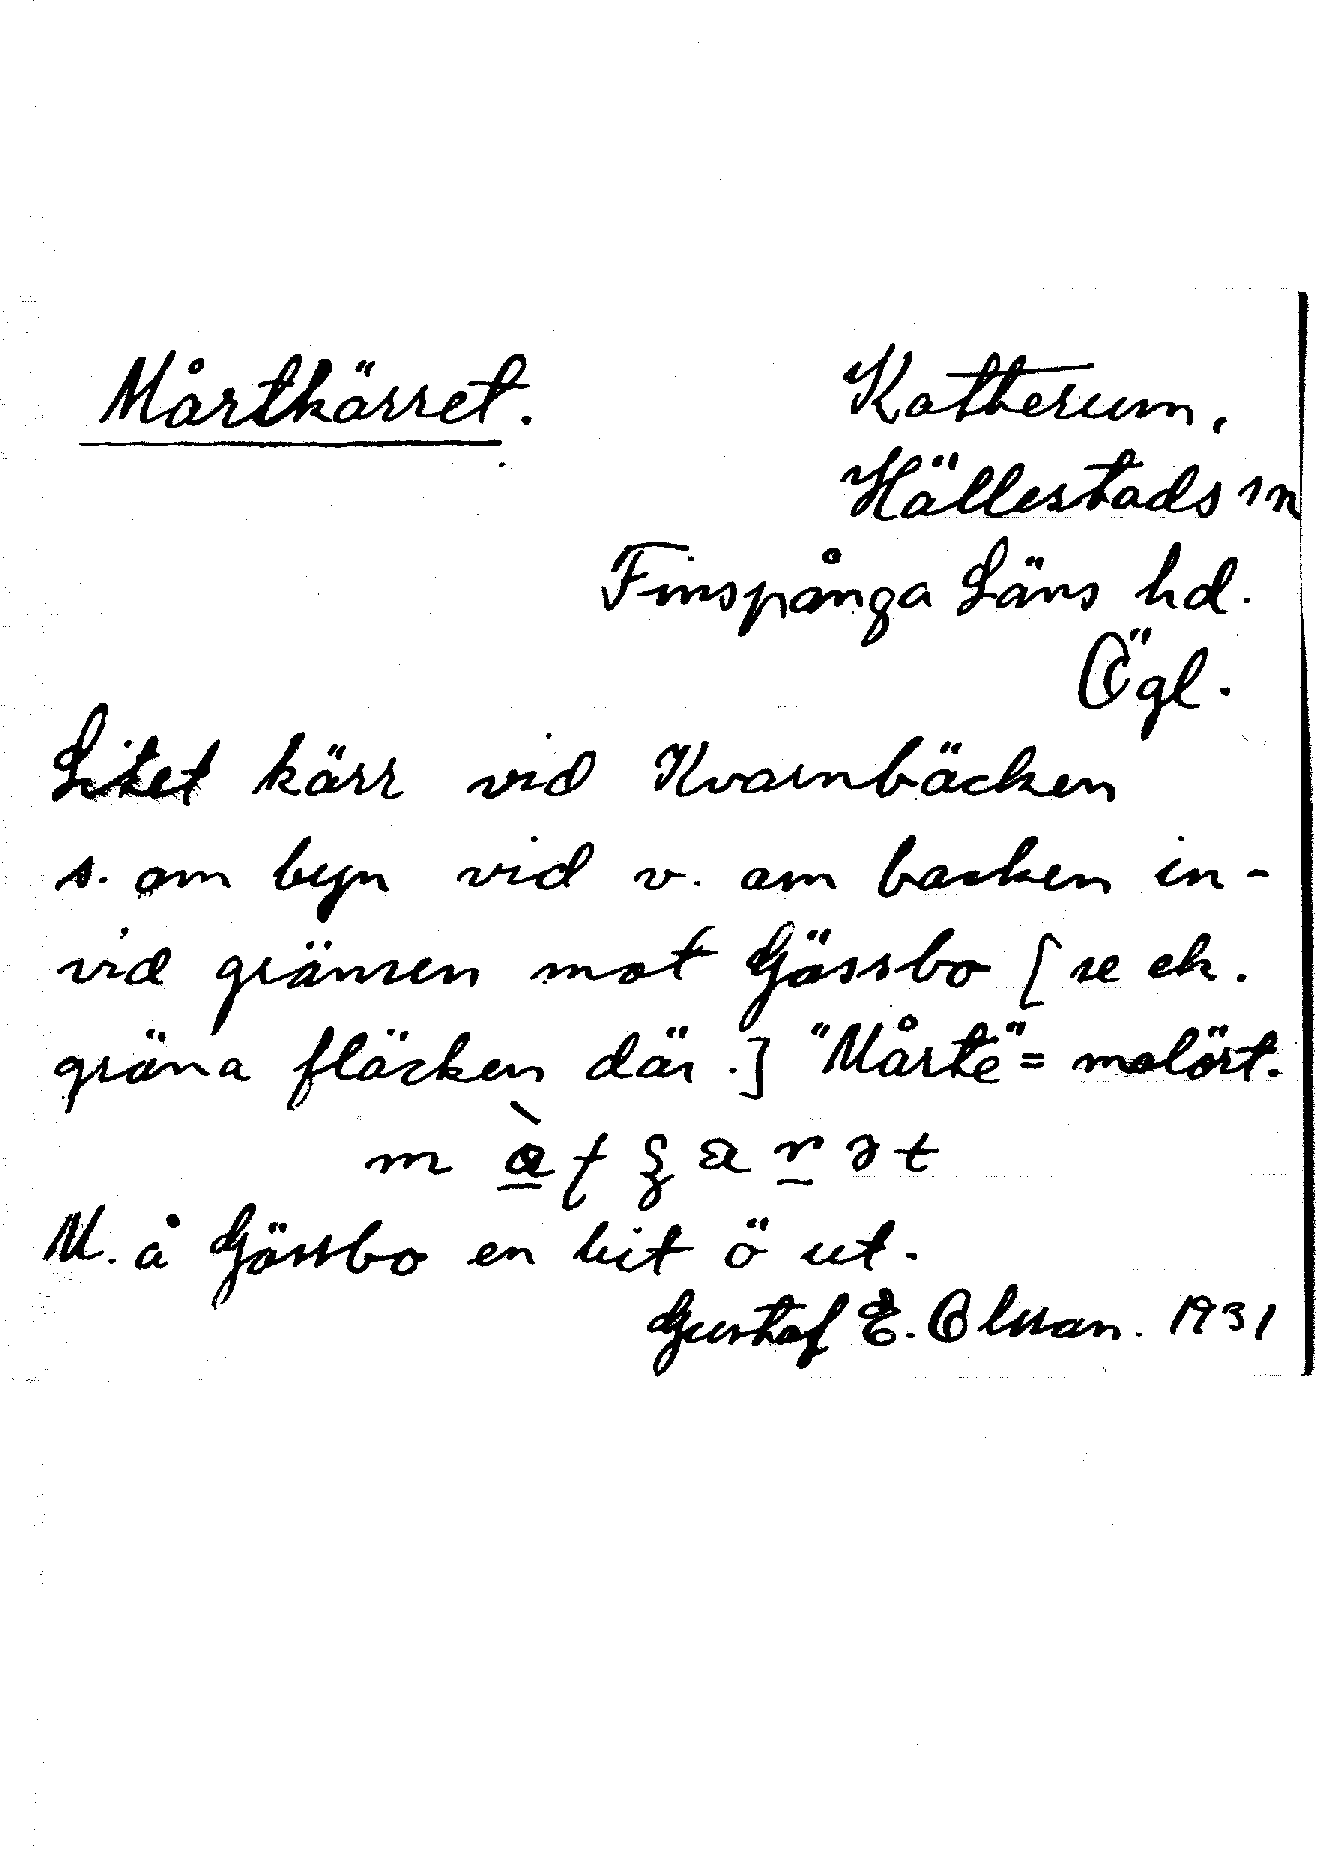 Mårtkärret.
Katterum,
Hällestads sn
Finspånga Läns hd.
Ögl.
Litet kärr vid Kvarnbäcken
s. om byn vid v. om backen in-
vid gränsen mot Gässbo [se ek.
gröna fläcken där.] "Mårte"= malört.
M. å Gässbo en bit ö ut.
Gustaf E. Olsson. 1931